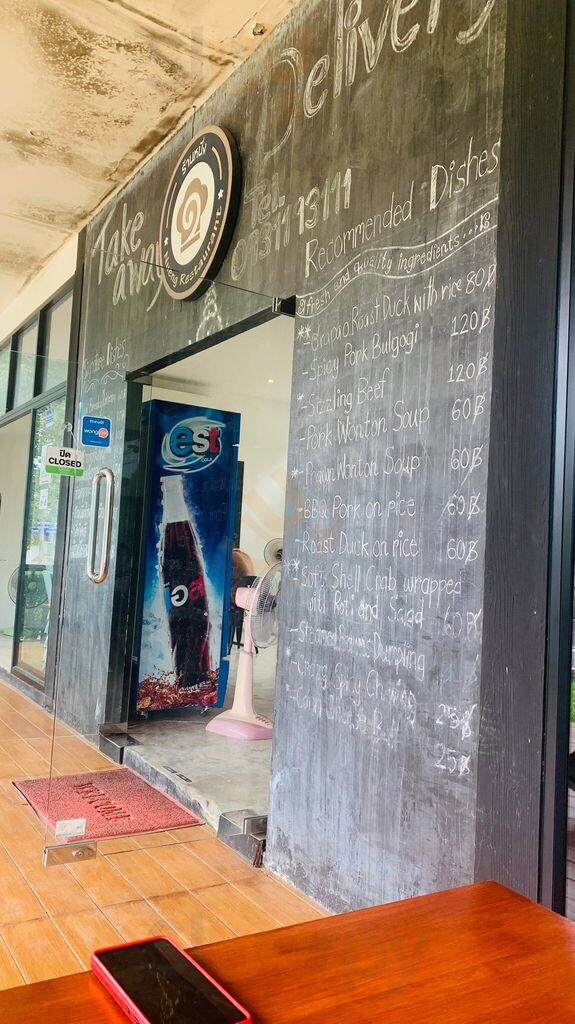 Delivery
Take
away
ร้านหนึ่ง
Nueng Restaurant
Tel.
Recommended Dishes
fresh and quality ingredients...
** Roast Duck with rice 80฿
- Spicy Pork Bulgogi 120฿
* Sizzling Beef 120฿
- Pork Wonton Soup 60฿
* - Prawn Wonton Soup 60฿
- BBQ Pork on rice 60฿
- Roast Duck on rice 60฿
** Soft Shell Crab wrapped
with Roti and Salad 60฿
- Steamed Dumpling
25฿
25฿
Dishes
est
COLA
est
wongnai
ปิด
CLOSED
WELCOME